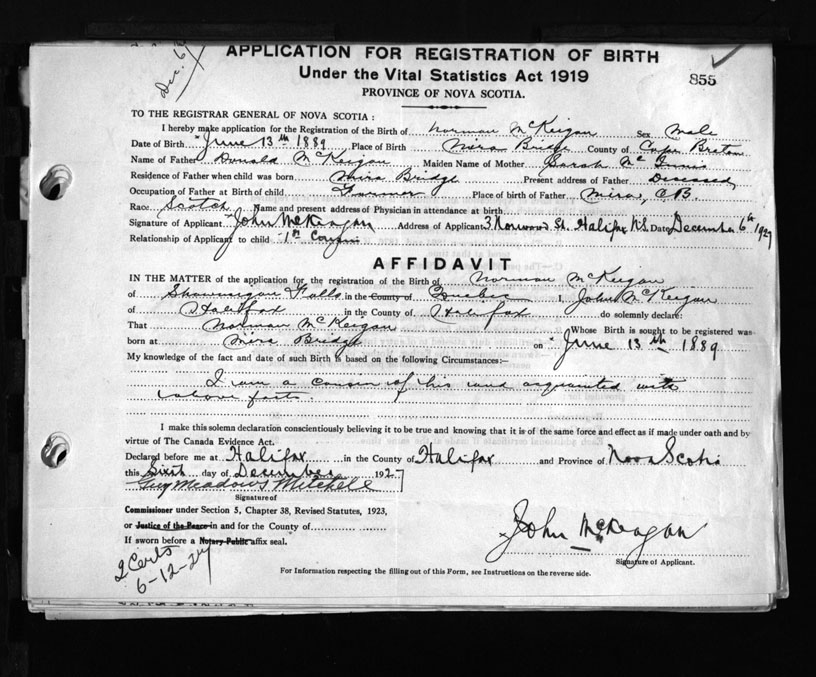 Dec. 6th
APPLICATION FOR REGISTRATION OF BIRTH
Under the Vital Statistics Act 1919
855
PROVINCE OF NOVA SCOTIA.
TO THE REGISTRAR GENERAL OF NOVA SCOTIA:
I hereby make application for the Registration of the Birth of Norman McKeigan Sex Male
Date of Birth June 13th 1889 Place of Birth Mira Bridge County of Cape Breton
Name of Father Donald McKeigan Maiden Name of Mother Sarah Mc Innis
Residence of Father when child was born Mira Bridge Present address of Father Deceased
Occupation of Father at Birth of child Farmer Place of birth of Father Mira, C.B.
Race Scotch Name and present address of Physician in attendance at birth
Signature of Applicant John McKeagan Address of Applicant 3 Norwood St. Halifax N.S. Date December 6th 1927
Relationship of Applicant to child 1st Cousin
AFFIDAVIT
IN THE MATTER of the application for the registration of the Birth of Norman McKeigan
of Shawinegan Falls in the County of Quebec I, John McKeigan
of Halifax in the County of Halifax do solemnly declare:
That Norman McKeigan Whose Birth is sought to be registered was
born at Mira Bridge on June 13th 1889
My knowledge of the fact and date of such Birth is based on the following Circumstances:–
I am a cousin of his and acquainted with
above facts.
I make this solemn declaration conscientiously believing it to be true and knowing that it is of the same force and effect as if made under oath and by
virtue of The Canada Evidence Act.
Declared before me at Halifax in the County of Halifax and Province of Nova Scotia
this Sixth day of December 1927
Guy Meadows Mitchell
Signature of
Commissioner under Section 5, Chapter 38, Revised Statutes, 1923,
or Justice of the Peace in and for the County of
If sworn before a Notary Public affix seal.
John McKeagan
Signature of Applicant.
2 Certs
6-12-27
For Information respecting the filling out of this Form, see Instructions on the reverse side.